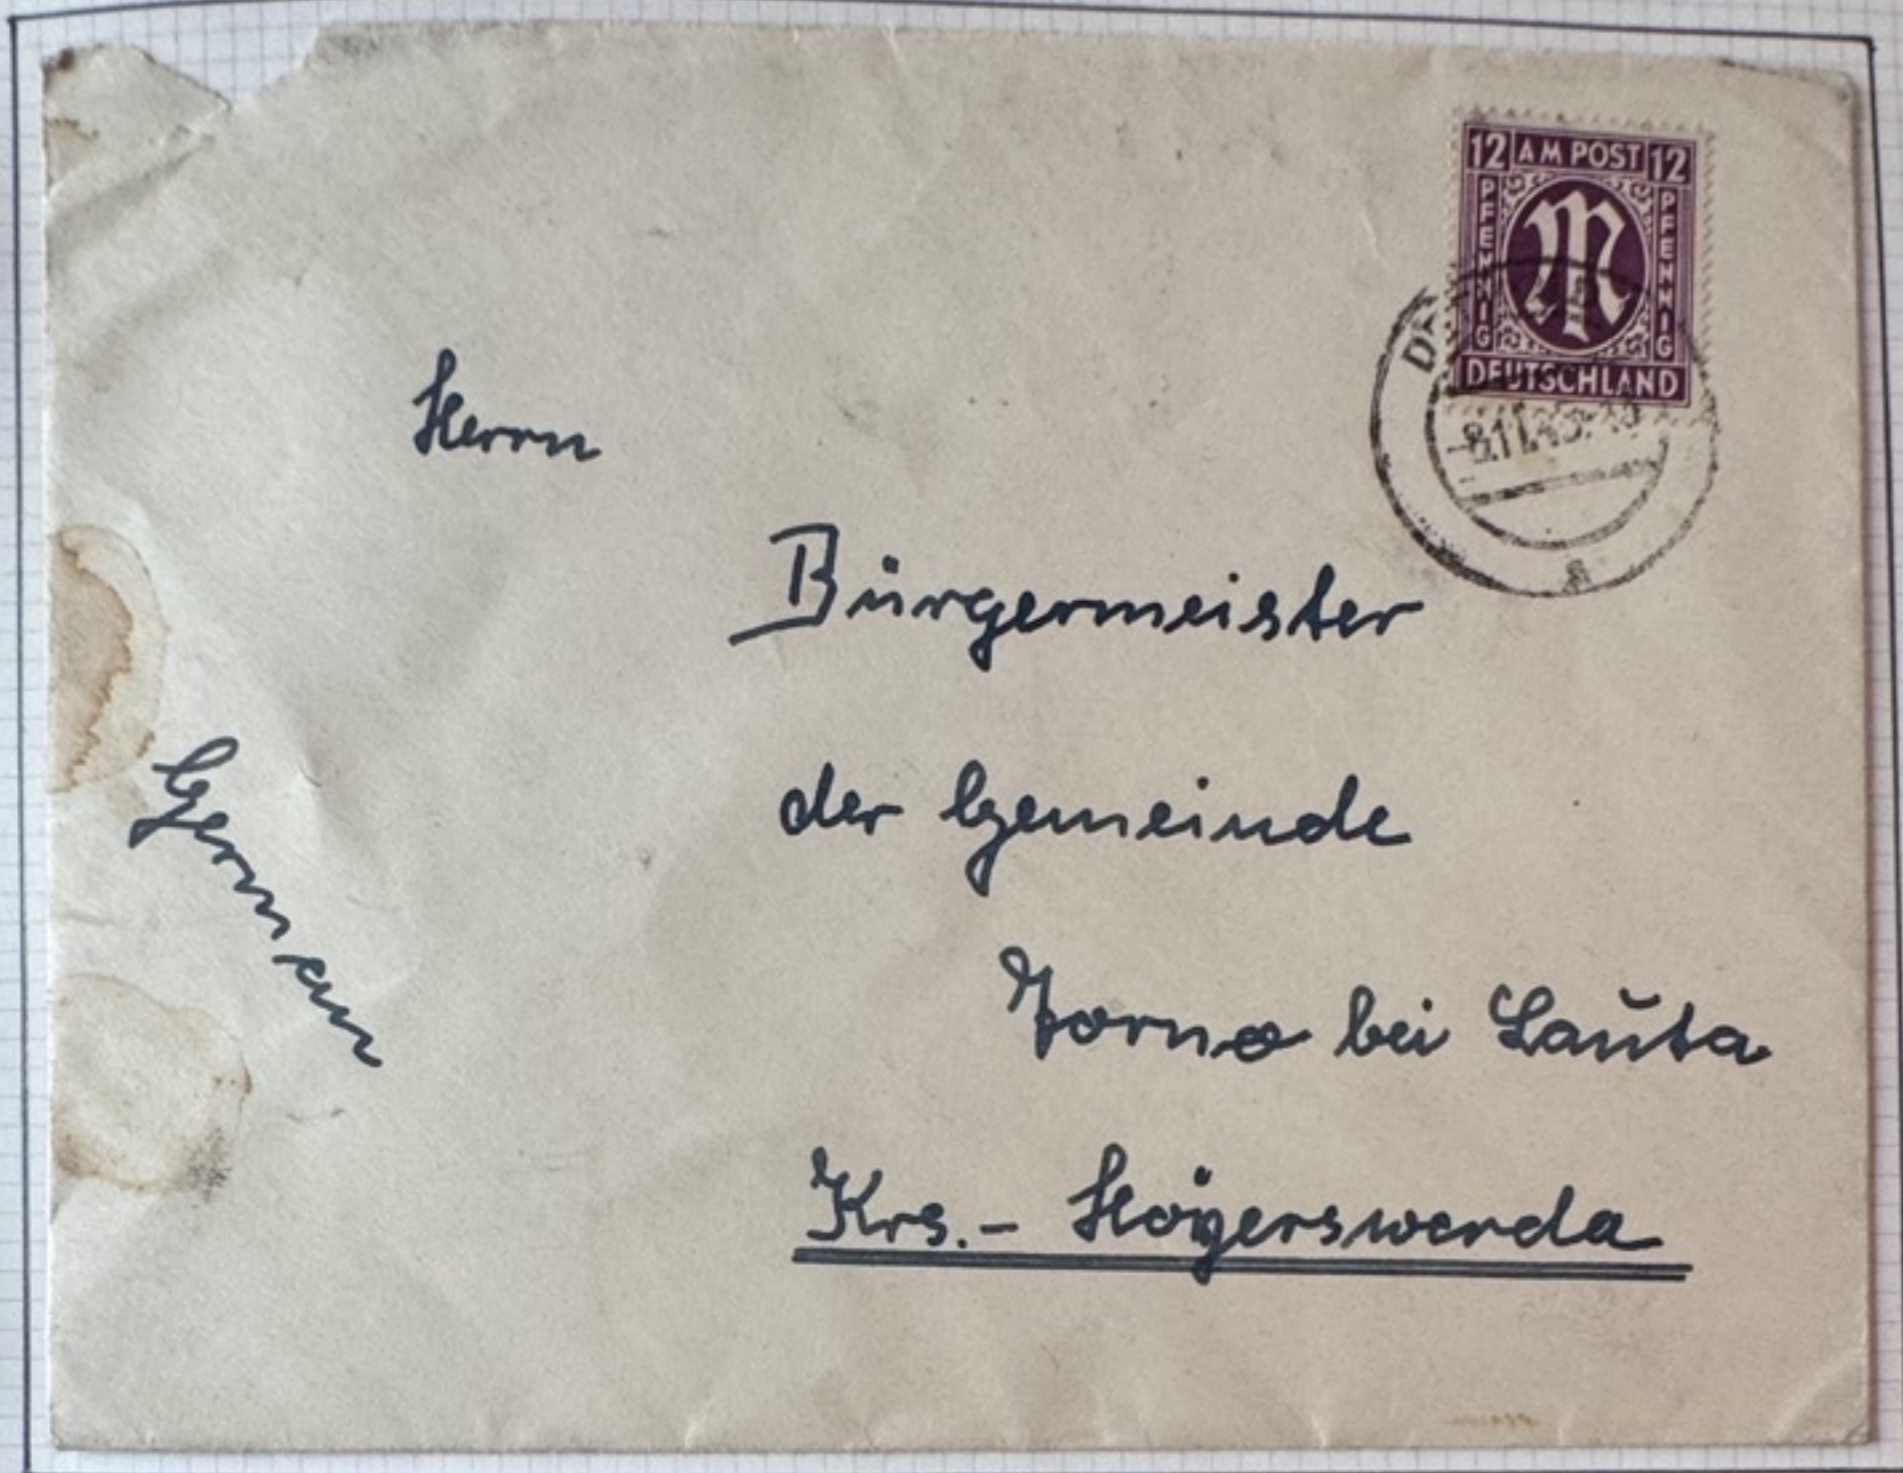 12 AM POST 12
PFENNIG PFENNIG
DEUTSCHLAND
Herrn
Bürgermeister
der Gemeinde
Torno bei Lauta
Krs.- Hoÿerswerda
German
a